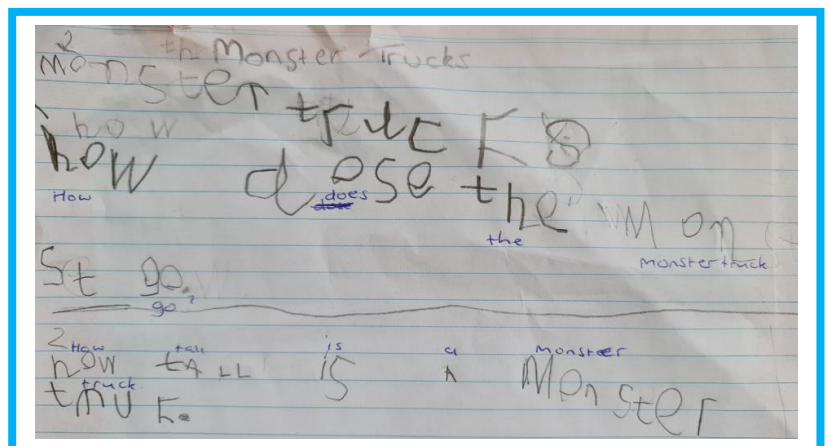 2 th Monster Trucks
Monster trucks
how
how dose the Mon
How does the monster truck
St go.
go?
2 How tall is a monster
how tALL is A Monster
truck
truk.